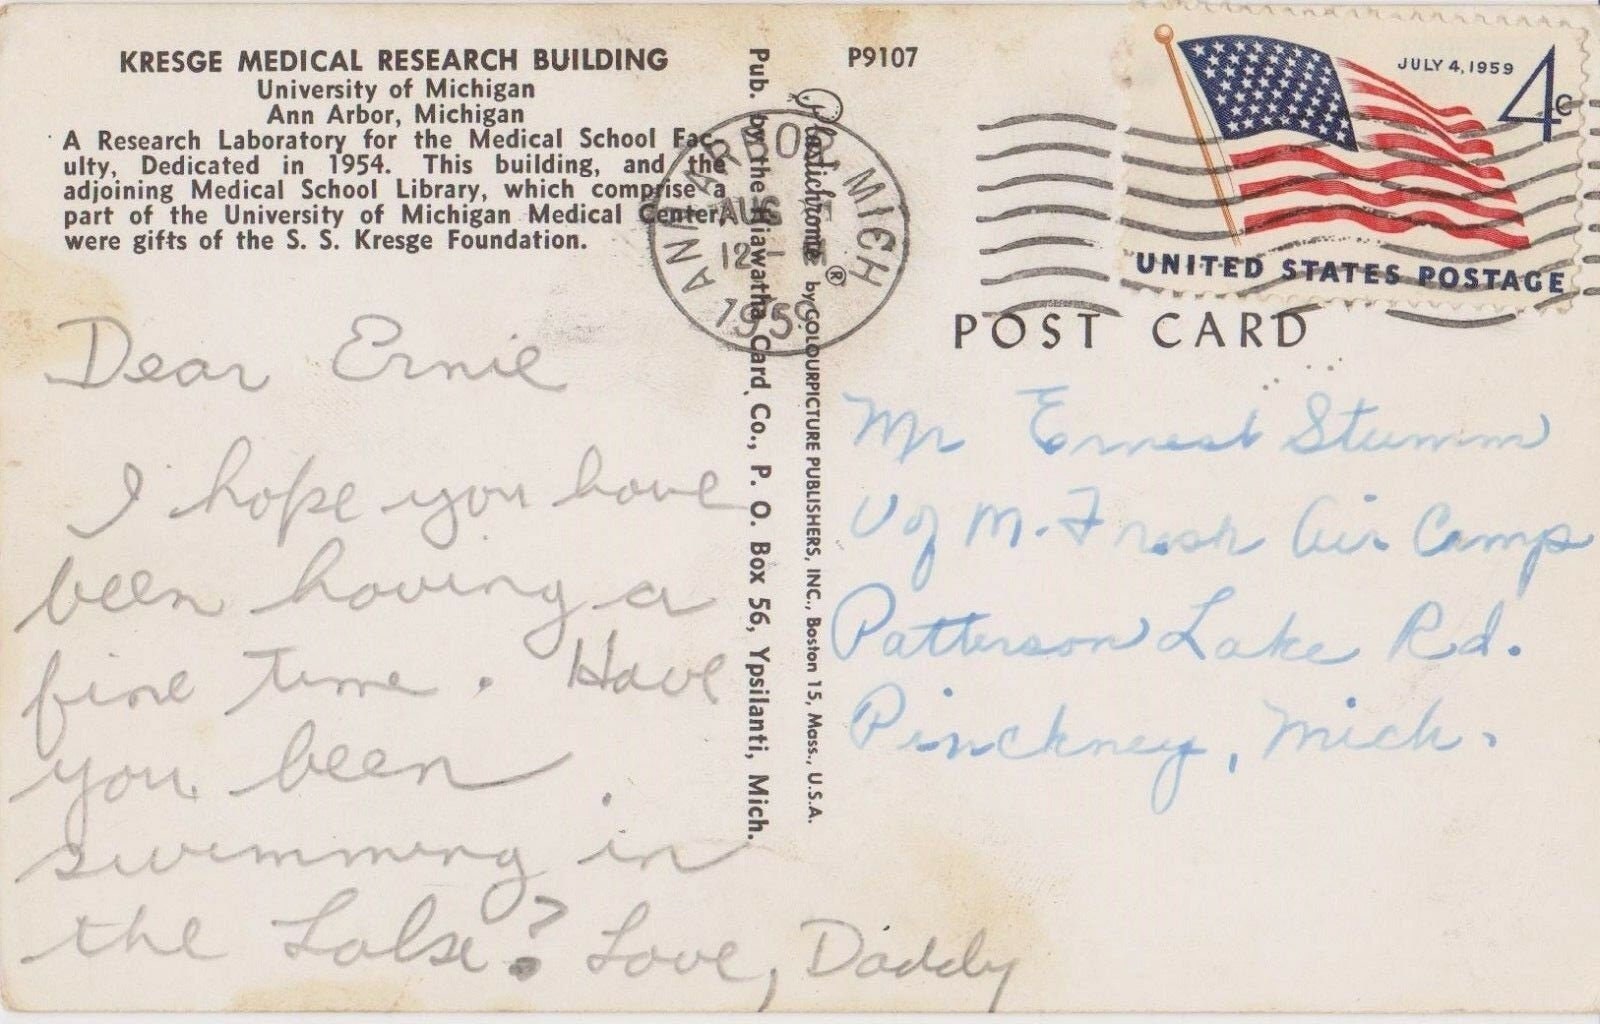 KRESGE MEDICAL RESEARCH BUILDING
University of Michigan
Ann Arbor, Michigan
A Research Laboratory for the Medical School Fac-
ulty, Dedicated in 1954. This building, and the
adjoining Medical School Library, which comprise a
part of the University of Michigan Medical Center,
were gifts of the S. S. Kresge Foundation.
Dear Ernie
I hope you have
been having a
fine time. Have
you been
swimming in
the Lake? Love, Daddy
Pub. by the Hiawatha Card Co., P. O. Box 56, Ypsilanti, Mich.
Plastichrome ® by COLOURPICTURE PUBLISHERS, INC., Boston 15, Mass., U.S.A.
P9107
ANN ARBOR MICH
AUG
12
1959
JULY 4, 1959
4c
UNITED STATES POSTAGE
POST CARD
Mr Ernest Stumm
U of M. Fresh Air Camp
Patterson Lake Rd.
Pinckney, Mich.